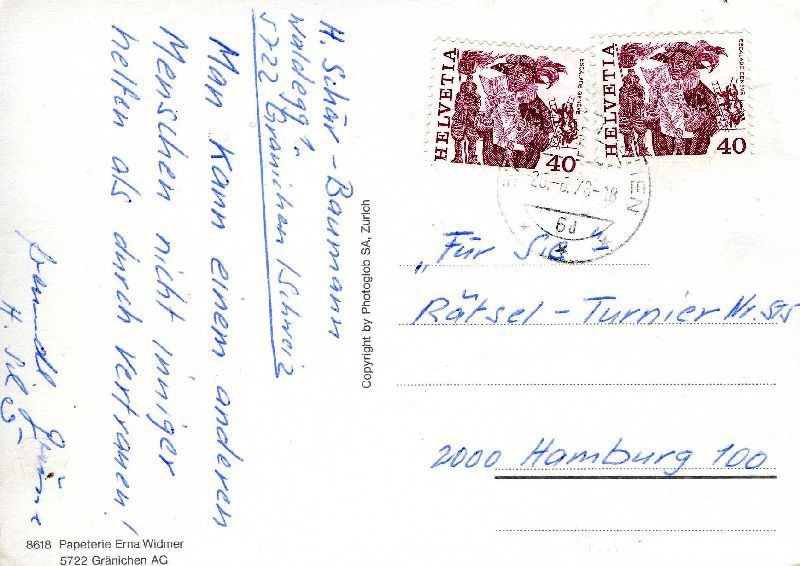 H. Schär-Baumann
Waldegg 1.
5722 Gränichen / Schweiz
Man kann einem anderen
Menschen nicht inniger
helfen als durch Vertrauen!
H.
8618 Papeterie Erna Widmer
5722 Gränichen AG
Copyright by Photoglob SA, Zurich
HELVETIA
ESCALADE GENÈVE
40
HELVETIA
ESCALADE GENÈVE
40
6d
„Für Sie“-
Rätsel-Turnier Nr. 515
2000 Hamburg 100